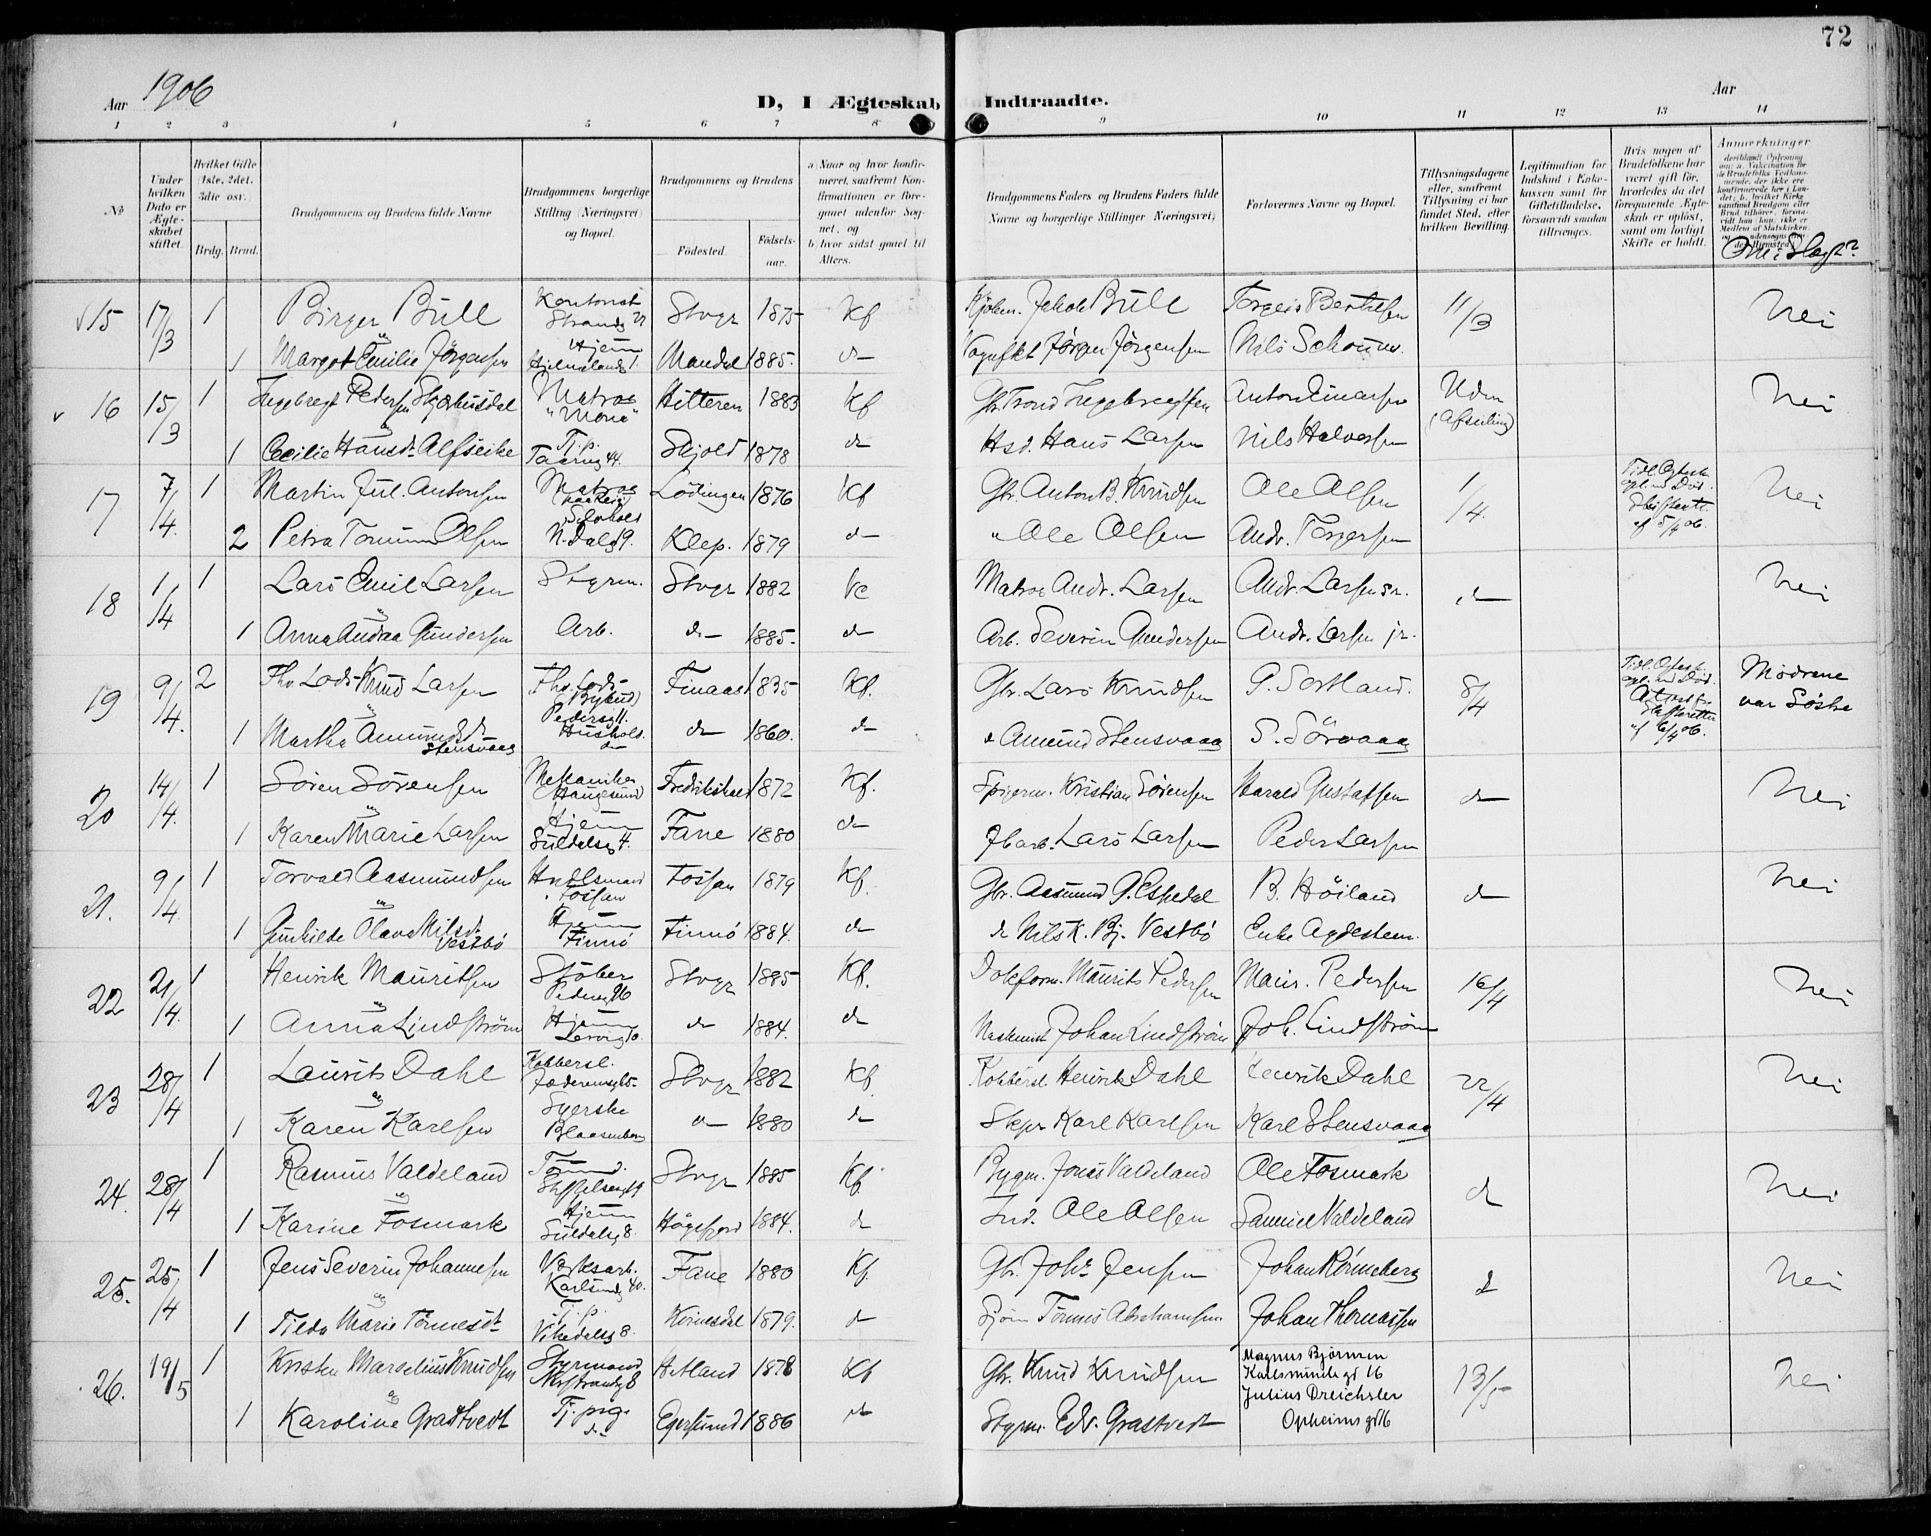 72
Aar 1906
D, I Ægteskab Indtraadte.
Aar
1 2 3 4 5 6 7 8 9 10 11 12 13 14
No
Under hvilken Dato er Ægteskabet stiftet.
Hvilket Gifte (1ste, 2det, 3die osv.
Brdg. Brud.
Brudgommens og Brudens fulde Navne
Brudgommens borgerlige Stilling (Næringsvei) og Bopæl.
Brudgommens og Brudens
Fødested.
Fødselsaar.
a) Naar og hvor konfirmeret, saafremt Konfirmationen er foregaaet udenfor Sognet, og
b) hvor sidst gaaet til Alters.
Brudgommens Faders og Brudens Faders fulde Navne og borgerlige Stillinger (Næringsvei)
Forlovernes Navne og Bopæl.
Tillysningsdagene eller, saafremt Tillysning ei har fundet Sted, efter hvilken Bevilling.
Legitimation for Indskud i Enkekassen samt for Giftetilladelse, forsaavidt saadan tiltrænges.
Hvis nogen af Brudefolkene har været gift før, hvorledes da det foregaaende Ægteskab er opløst, samt om lovligt Skifte er holdt.
Anmerkninger
Om i Slægt?
15 17/3 1 Birger Bull Kontorist Strandg 27 Stvgr 1875 Kf Kjøbm. Jakob Bull Torgeis Berthelsen 11/3 Nei
1 Margot Emilie Jørgensen Hjem Hjelmelandsg 1. Mandal 1885. do Vognfbt Jørgen Jørgensen Nils Schou
16 15/3 1 Ingebregt Pedersen Matros "Mona" Hitteren 1883 Kf Gbr Trond Ingebregtsen Anton Einarsen Uden (Afseiling) Nei
1 Cecilie Hansd. Alfseike Tj.p. 44. Skjold 1878 do Hsd. Hans Larsen Nils Halvorsen
17 7/4 1 Martin Jul. Antonsen Matros Lødingen 1876 Kf Gbr. Anton B. Knudsen Ole Olsen 1/4. Tidl. Ægtesk. opl. ved Død. Skifteatt. af 5/4 06. Nei
2 Petra Olsen N. Dalsg 9. Klep. 1879 do " Ole Olsen Andr. Torgersen
18 1/4 1 Lars Emil Larsen Styrm. Stvgr 1882 Kf Matros Andr. Larsen Andr. Larsen sr. do Nei
1 Anna Gundersen Arb. do 1885. do Arb. Severin Gundersen Andr. Larsen jr.
19 9/4. 2 Fhv. Lods Knud Larsen Fhv. Lods Pedersg 11. Finaas 1835 Kf. Gbr. Lars Knudsen G. Sortland. 8/4 Tidl. Ægtesk. opl. ved Død. Attest fra Skifteretten af 6/4 06. Mødrene var Søstre
1 Martha Amundsd. Stensvaag Hushold. do do 1860. do " Amund Stensvaag S. Sörvaag
20 14/4. 1 Sören Sörensen Mekaniker Haugesund Fredrikshald 1872 Kf. Kristian Sörensen Harald Gustafsen do Nei
1 Karen Marie Larsen Hjem Suldalsg 4. Fane 1880 do Lars Larsen Peder Larsen
21. 9/4. 1 Torvald Aasmundsen Handelsmand Fossan Fossan 1879 Kf. Gbr. Aasmund G. Espedal B. Höiland do Nei
1 Gunhilde Olava Nilsd. Vestbö Hjem Finnö Finnö 1884. do do Nils K. Bj. Vestbö Enke Agdestein.
22 21/4. 1 Henrik Mauritsen Støber Pedersg 96 Stvgr 1885 Kf. Maurits Pedersen Maur. Pedersen 16/4 Nei
1 Anna Lindström Hjem 10. do 1884. do Maskinist Johan Lindström Joh. Lindström
23 28/4 1 Laurits Dahl Kobbersl. Jæderensg 5. Stvgr 1882 Kf Kobbersl. Henrik Dahl Henrik Dahl 22/4 Nei
1 Karen Karlsen Syerske Blaasenborg do 1880 do Skpr Karl Karlsen Karl Stensvaag
24. 28/4 1 Rasmus Valdeland Tømmd. Stvgr 1885 Kf. Bygm. Jonas Valdeland Ole Fosmark do Nei
1 Karine Fosmark Hjem Suldalsg 8. Høgsfjord 1884. do Ind. Ole Olsen Samuel Valdeland
25. 25/4 1 Jens Severin Johannesen Verksarb. Karlsundg 40. Fane 1880 Kf. Gbr. Johs Jensen Johan Rönneberg do Nei
1 Tilda Marie Tönnesdt. Tj.p. Vikedalsg 8. Kvinesdal 1879. do Sjöm Tönnes Abrahamsen Johan Thomassen
26. 19/5 1 Kristen Marselius Knudsen Styrmand Nystrandg 8 Hetland 1878 Kf Gbr. Knud Knudsen Magnus Björnsen Karlsmindegt 16 13/5 Nei
1 Karoline Grastvedt Tj.pig. do Egersund 1886 do Styrm. Edv. Grastvedt Julius Dreichsler Opheimsgt 16